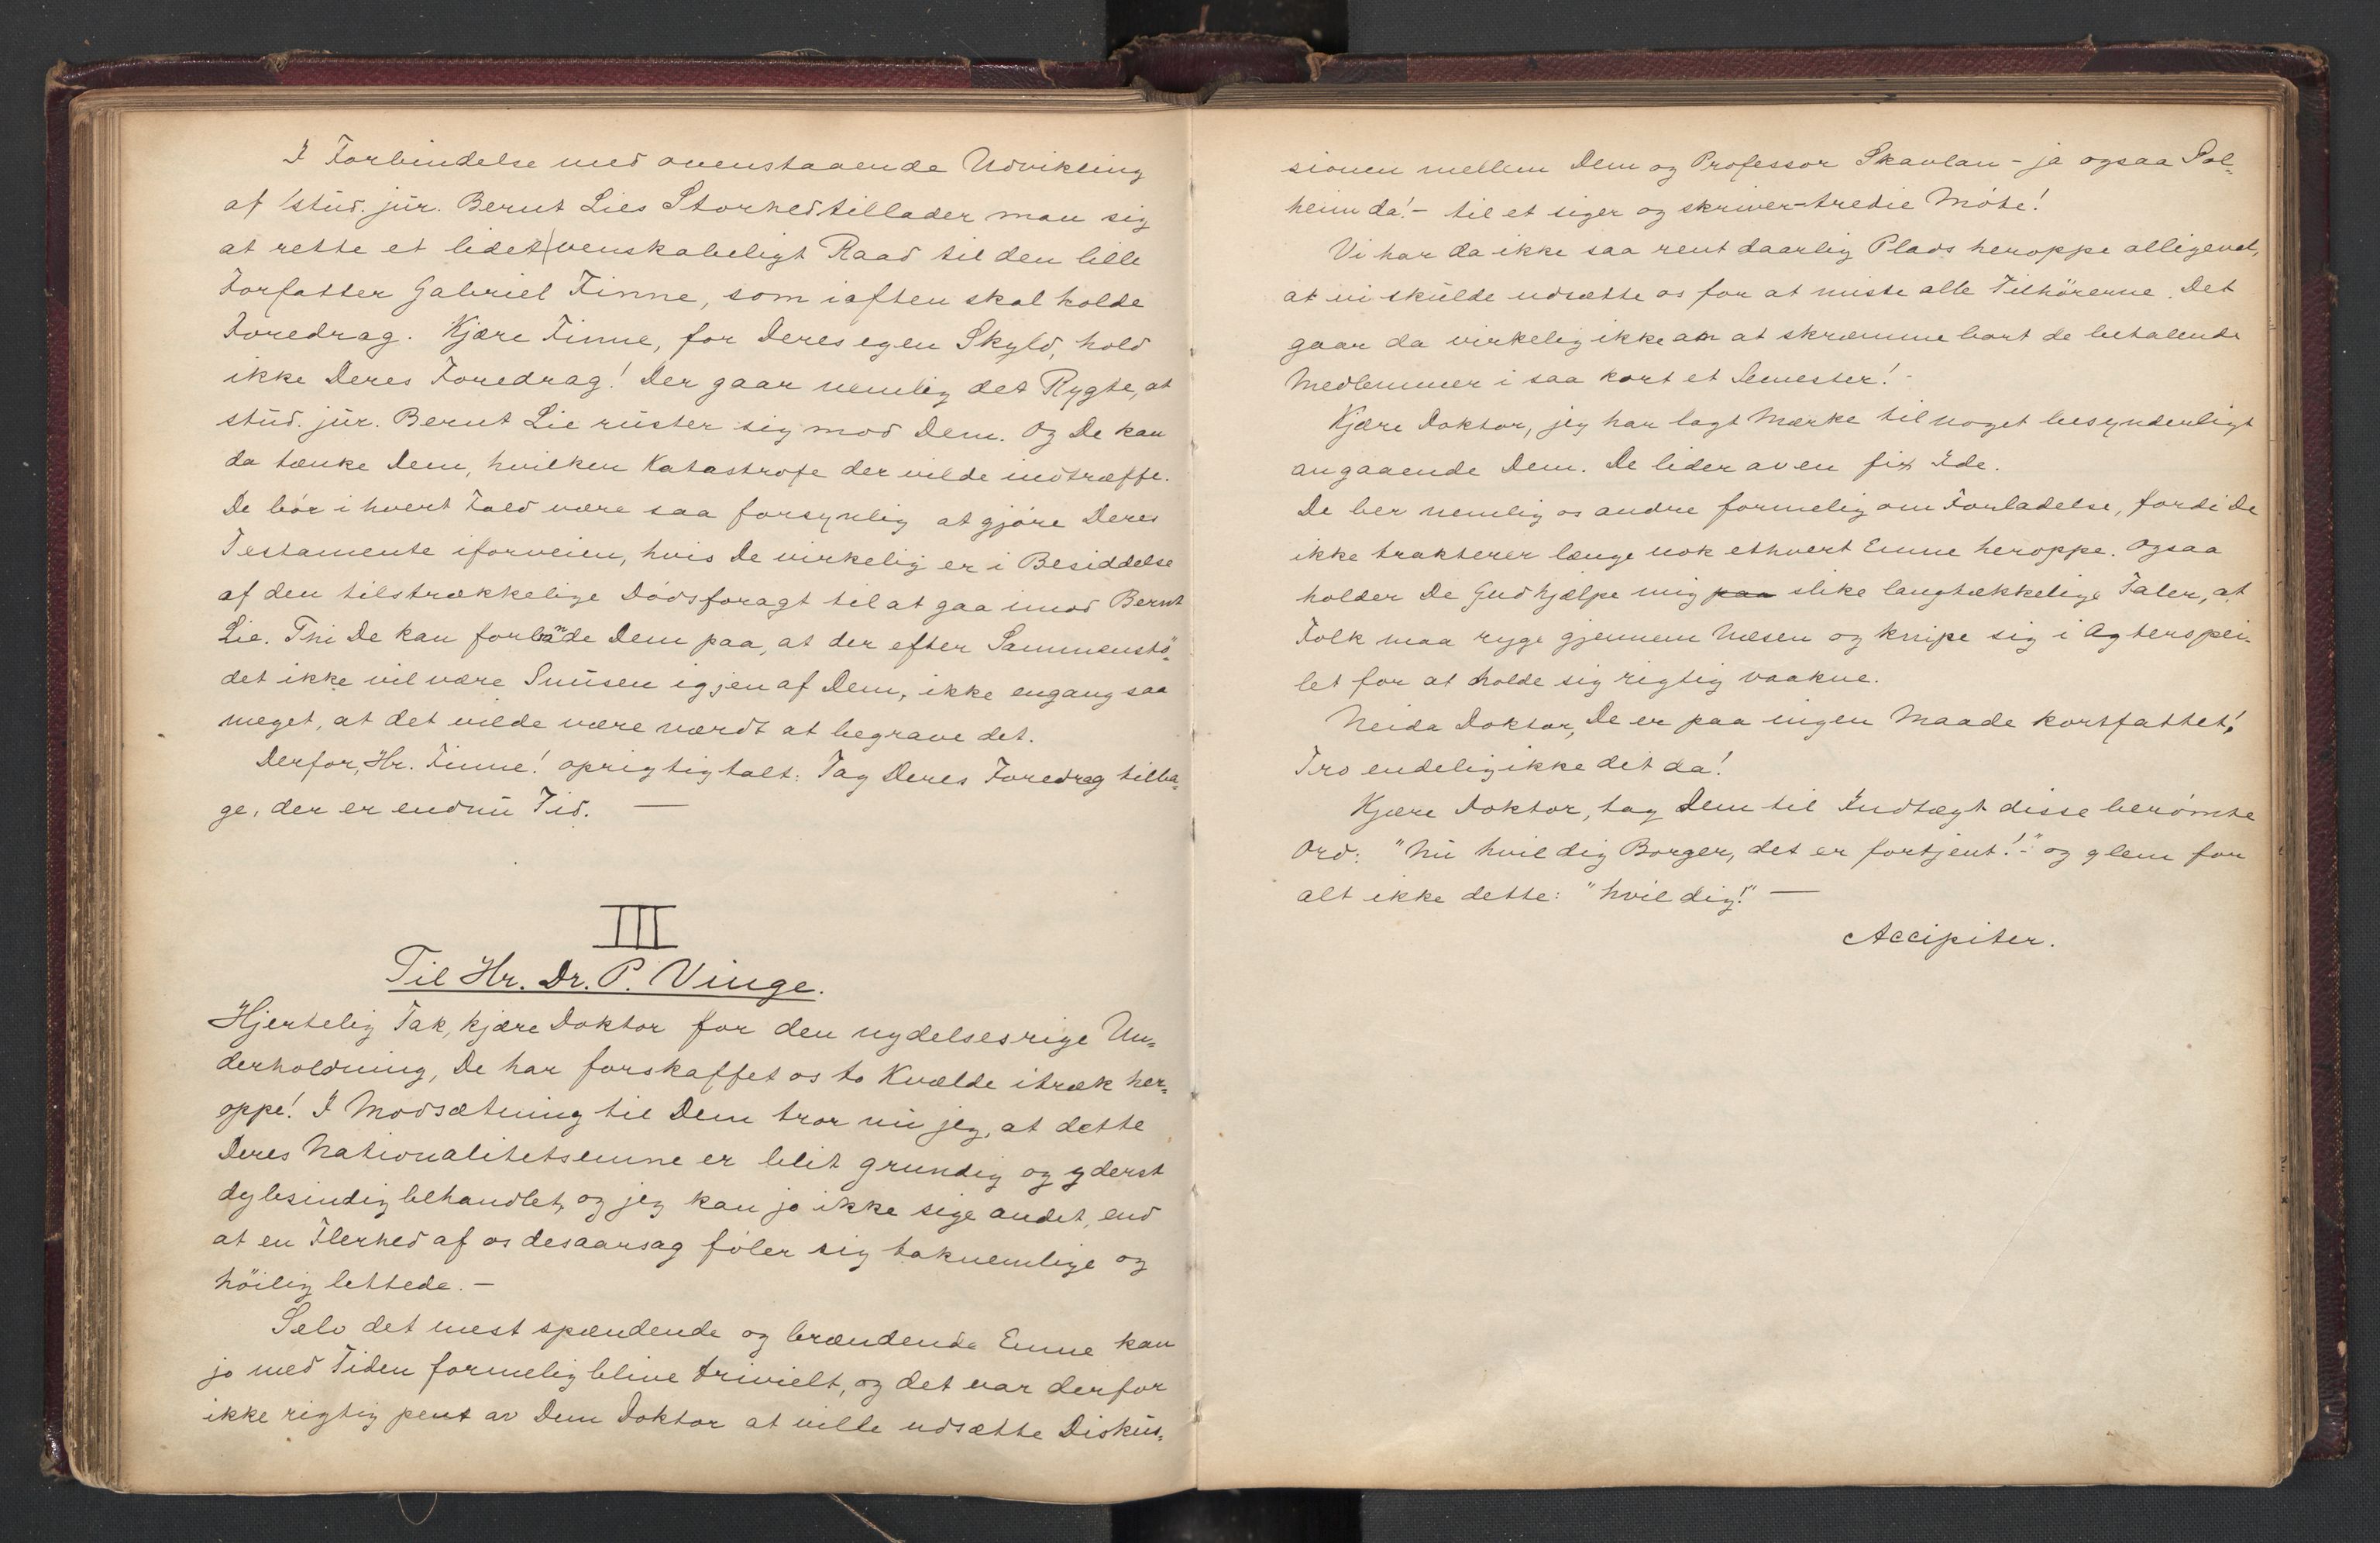 I Forbindelse med ovenstaaende Udvikling
af stud. jur. Bernt Lies Storhed tillader man sig
at rette et lidet venskabeligt Raad til den lille
Forfatter Gabriel Finne, som iaften skal holde
Foredrag. Kjære Finne, for Deres egen Skyld, hold
ikke Deres Foredrag! Der gaar nemlig det Rygte, at
stud. jur. Bernt Lie ruster sig mod Dem. Og De kan
da tænke Dem, hvilken Katastrofe der vilde indtræffe.
De bör i hvert Fald være saa forsynlig at gjöre Deres
Testamente iforveien, hvis De virkelig er i Besiddelse
af den tilstrækkelige Dödsforagt til at gaa imod Bernt
Lie. Thi De kan forlade Dem paa, at der efter Sammenstö=
det ikke vil være Snusen igjen af Dem, ikke engang saa
meget, at det vilde være værdt at begrave det.
Derfor, Hr. Finne! oprigtig talt: Tag Deres Foredrag tilba=
ge, der er endnu Tid. —
III
Til Hr. Dr. P. Vinge.
Hjertelig Tak, kjære Doktor for den nydelsesrige Un=
derholdning, De har forskaffet os to Kvælde itræk her=
oppe! I Modsætning til Dem tror nu jeg, at dette
Deres Nationalitetsemne er blit grundig og yderst
dybsindig behandlet, og jeg kan jo ikke sige andet, end
at en Flerhed af os desaarsag föler sig taknemlige og
höilig lettede. –
Selv det mest spændende og brændende Emne kan
jo med Tiden formelig blive trivielt, og det var derfor
ikke rigtig pent av Dem Doktor at ville udsætte Diskus=
sionen mellem Dem og Professor Skavlan – ja ogsaa Sol=
heim da! – til et siger og skriver – tredie Möte!
Vi har da ikke saa rent daarlig Plads heroppe alligevel,
at vi skulde udsætte os for at miste alle Tilhörerne. Det
gaar da virkelig ikke an at skræmme bort de betalende
Medlemmer i saa kort et Semester! –
Kjære Doktor, jeg har lagt Mærke til noget besynderligt
angaaende Dem. De lider av en fix Ide.
De ber nemlig os andre formelig om Forladelse, fordi De
ikke trakterer længe nok ethvert Emne heroppe. Ogsaa
holder De Gud hjælpe mig paa slike langtækkelige Taler, at
Folk maa ryge gjennem Næsen og knipe sig i Agterspei=
let for at holde sig rigtig vaakne.
Neida Doktor, De er paa ingen Maade kortfattet!
Tro endelig ikke det da!
Kjære Doktor, tag Dem til Indtægt disse berömte
Ord: "Nu hvil dig Borger, det er fortjent! –" og glem for
alt ikke dette: "hvil dig!" —
Accipiter.